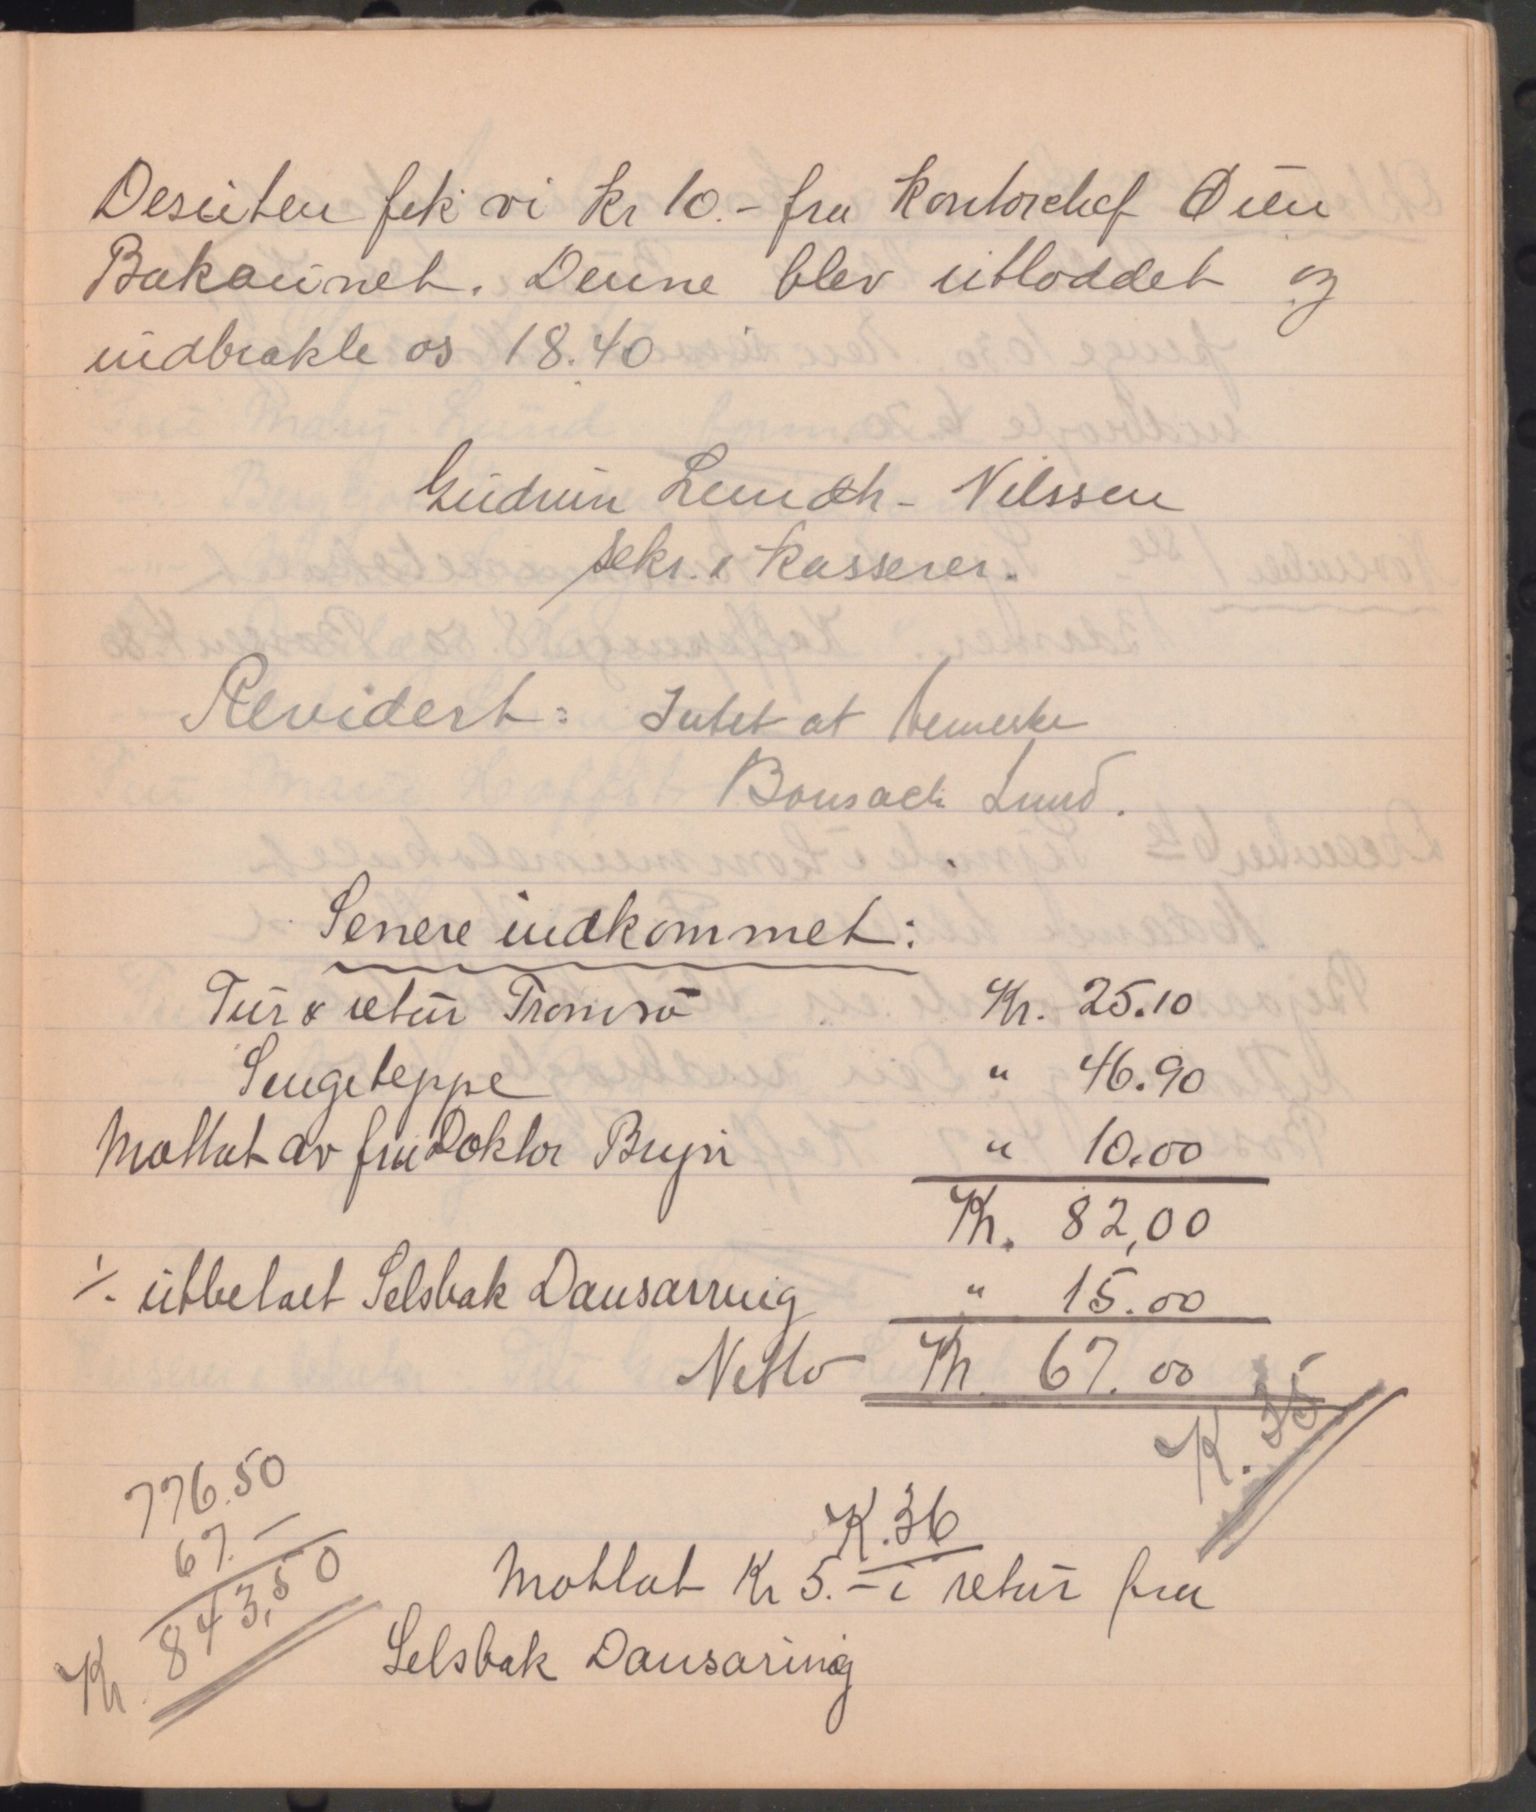 Desuten fik vi kr 10.- fra kontorchef Öien
Bakaunet. Denne blev utloddet og
indbrakte os 18.40
Gudrun Lundh - Nilssen
sekr. & kasserer.
Revidert: Intet at bemerke
Bonsach Lund.
Senere indkommet:
Tur & retur Tromsö Kr. 25.10
Sengeteppe " 46.90
Mottat av fru Doktor Bryn " 10.00
Kr. 82,00
./. utbetalt Selsbak Dansarring " 15.00
Netto Kr. 67.00
K. 35
776.50
67.-
Kr. 843,50
K.36
Mottat Kr 5.- i retur fra
Selsbak Dansaring